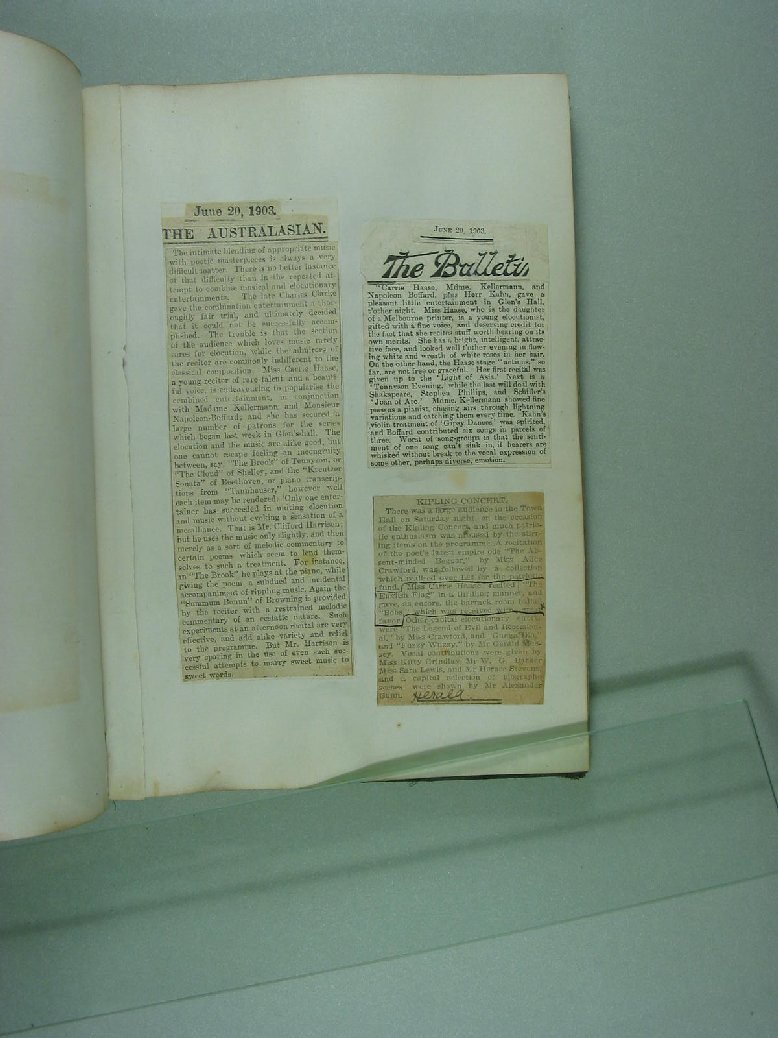 June 20, 1903.
THE AUSTRALASIAN.
The intimate blending of appropriate music
with poetic masterpieces is always a very
difficult matter. There is no better instance
of that difficulty than in the repeated at-
tempt to combine musical and elocutionary
entertainments. The late Clarke
gave the combination entertainment a tho-
roughly fair trial, and ultimately decided
that it could not be successfully accom-
plished. The trouble is that the section
of the audience which loves music rarely
cares for elocution, while the admirers of
the reciter are commonly indifferent to the
musical composition. Miss Carrie Haase,
a young reciter of rare talent and a beauti-
ful voice, is endeavouring to popularise the
combined entertainment, in conjunction
with Madame Kellermann and Monsieur
Napoleon Boffard, and she has secured a
large number of patrons for the series
which began last week in Glen's-hall. The
elocution and the music are alike good, but
one cannot escape feeling an incongruity
between, say, "The Brook" of Tennyson, or
"The Cloud" of Shelley, and the "Kreutzer
Sonata" of Beethoven, or piano transcrip-
tions from "Tannhauser," however well
each item may be rendered. Only one enter-
tainer has succeeded in uniting elocution
and music without evoking a sensation of a
mesalliance. That is Mr. Clifford Harrison;
but he uses the music only slightly, and then
merely as a sort of melodic commentary to
certain poems which seem to lend them-
selves to such a treatment. For instance,
in "The Brook" he plays at the piano, while
giving the poem a subdued and incidental
accompaniment of rippling music. Again the
"Summum Bonum" of Browning is provided
by the reciter with a restrained melodic
commentary of an ecstatic nature. Such
experiments at an afternoon recital are very
effective, and add alike variety and relief
to the programme. But Mr. Harrison is
very sparing in the use of even such suc-
cessful attempts to marry sweet music to
sweet words.
JUNE 20, 1903.
The Bulletin
"Carrie Haase, Mdme. Kellermann, and
Napoleon Boffard, plus Herr Kuhn, gave a
pleasant little entertainment in Glen's Hall,
t'other night. Miss Haase, who is the daughter
of a Melbourne printer, is a young elocutionist,
gifted with a fine voice, and deserving credit for
the fact that she recites stuff worth hearing on its
own merits. She has a bright, intelligent, attrac-
tive face, and looked well t'other evening in flow-
ing white and wreath of white roses in her hair.
On the other hand, the Haase stage "actions," so
far, are not free or graceful. Her first recital was
given up to the "Light of Asia." Next is a
Tennyson Evening, while the last will deal with
Shakspeare, Stephen Phillips, and Schiller's
"Joan of Arc." Mdme. Kellermann showed fine
paces as a pianist, chasing airs through lightning
variations and catching them every time. Kuhn's
violin treatment of 'Gipsy Dances' was splendid,
and Boffard contributed six songs in parcels of
three. Worst of song-groups is that the senti-
ment of one long can't sink in, if hearers are
whisked without break to the vocal expression of
some other, perhaps diverse, emotion."
KIPLING CONCERT.
There was a large audience in the Town
Hall on Saturday night on the occasion
of the Kipling Concert, and much patrio-
tic enthusiasm was aroused by the stir-
ring items on the programme. A recitation
of the poet's latest empire ode "The Ab-
sent-minded Beggar," by Miss Alice
Crawford, was followed by a collection
which realised over for the patriotic
fund. Miss Carrie Haase recited "The
English Flag" in a finished manner, and
gave, as encore, the barrack room ballad
"Bobs," which was received with
favor. Other capital elocutionary
were "The Legend of Evil and Recession-
al," by Miss Crawford, and "Gunga Din,"
and "Fuzzy Wuzzy," by Mr Gerald
sey. Vocal contributions were given by
Miss Kitty Grindlay, Mr W. G. Barker
Miss Sara Lewis, and Mr Horace Stevens,
and a capital selection of biographe
scenes were shown by Mr Alexander
Gunn.
Herald